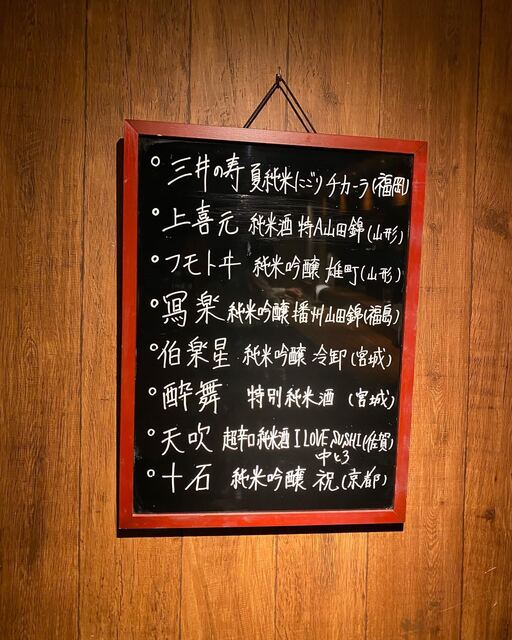 ○ 三井の寿 夏純米にごりチカーラ(福岡)
○ 上喜元 純米酒 特A山田錦(山形)
○ フモトヰ 純米吟醸 雄町(山形)
○ 冩楽 純米吟醸 播州山田錦(福島)
○ 伯楽星 純米吟醸 冷卸(宮城)
○ 酔舞 特別純米酒 (宮城)
○ 天吹 超辛口純米酒 I LOVE SUSHI(佐賀)
中とろ
○ 十石 純米吟醸 祝(京都)